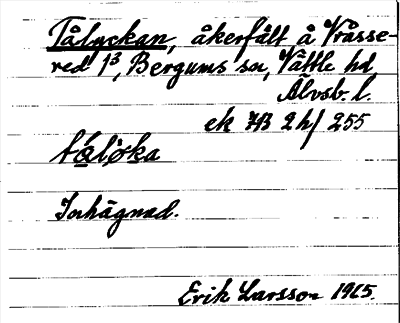 Tålyckan, åkerfält å Vråsse-
red 1³, Bergums sn, Vättle hd
Älvsb. l.
ek 7B 2 h/ 255
Inhägnad.
Erik Larsson 1915.